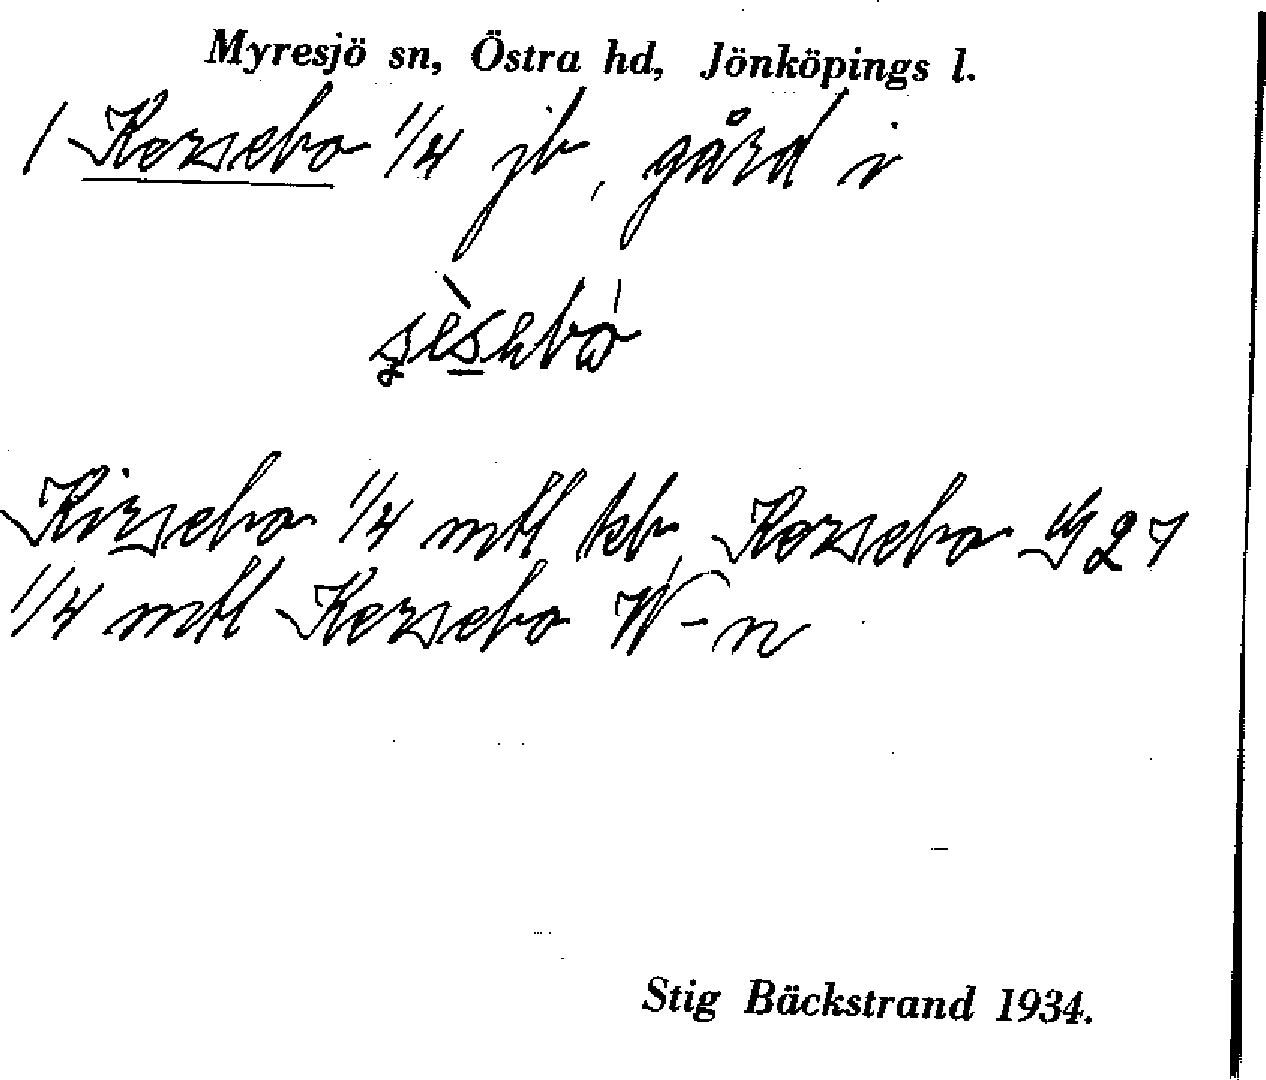 Myresjö sn, Östra hd, Jönköpings l.
1 Kersebo 1/4 jb, gård i
Kirsebo 1/4 mtl kb, Kersebo
1/4 mtl Kersebo W-n
Stig Bäckstrand 1934.